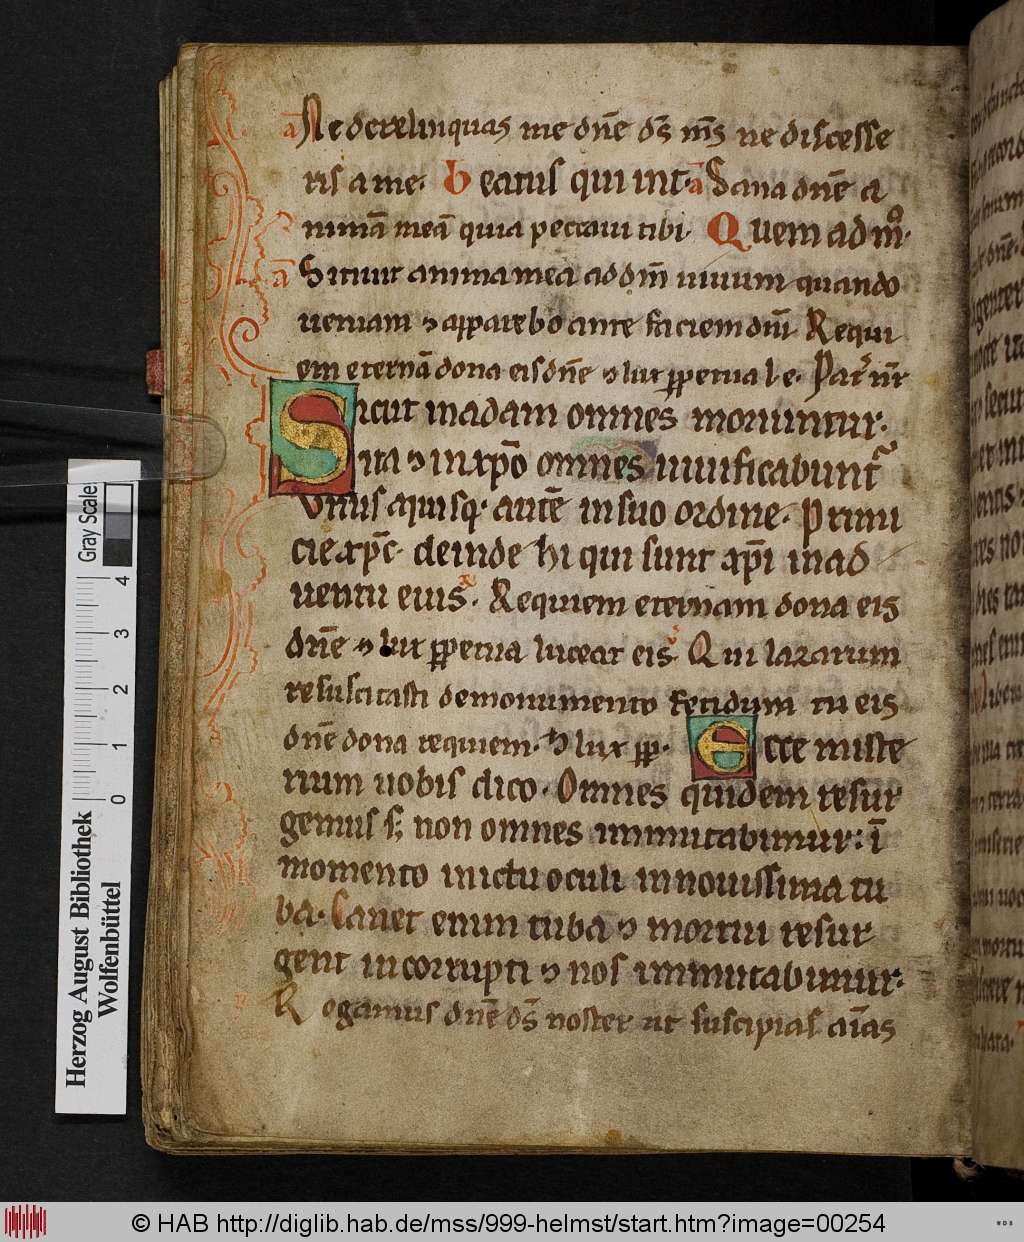 a Ne derelinquas me dn̄e ds̄ ms̄ ne discesse
ris a me. Beatus qui int. a Sana dn̄e a
nimā meā quia peccaui tibi. Quem ad mͦ.
a Sitiuit anima mea ad dm̄ uiuum quando
ueniam ⁊ apparebo ante faciem dn̄i Requi
em eternā dona eis dn̄e ⁊ lux ꝑpetua l. e. Pat̄ nr̄
Sicut in adam omnes moriuntur.
ita ⁊ in xp̄o omnes uiuificabunt᷑
Vnusquisq. autē in suo ordine. Primi
cie xp̄c. deinde hi qui sunt xp̄i in ad
uentu eius. Requiem eternam dona eis
dn̄e ⁊ lux ꝑpetua luceat eis. Qui lazarum
resuscitasti de monumento fetidum tu eis
dn̄e dona requiem. ⁊ lux ꝑp. Ecce miste
rium uobis dico. Omnes quidem resur
gemus s; non omnes immutabimur. ī
momento in ictu oculi in nouissima tu
ba. Canet enim tuba ⁊ mortui resur
gent incorrupti ⁊ nos immutabimur.
Rogamus dn̄e ds̄ noster ut suscipias aīas
Gray Scale
4
3
2
1
0
Herzog August Bibliothek
Wolfenbüttel
© HAB http://diglib.hab.de/mss/999-helmst/start.htm?image=00254
WDB